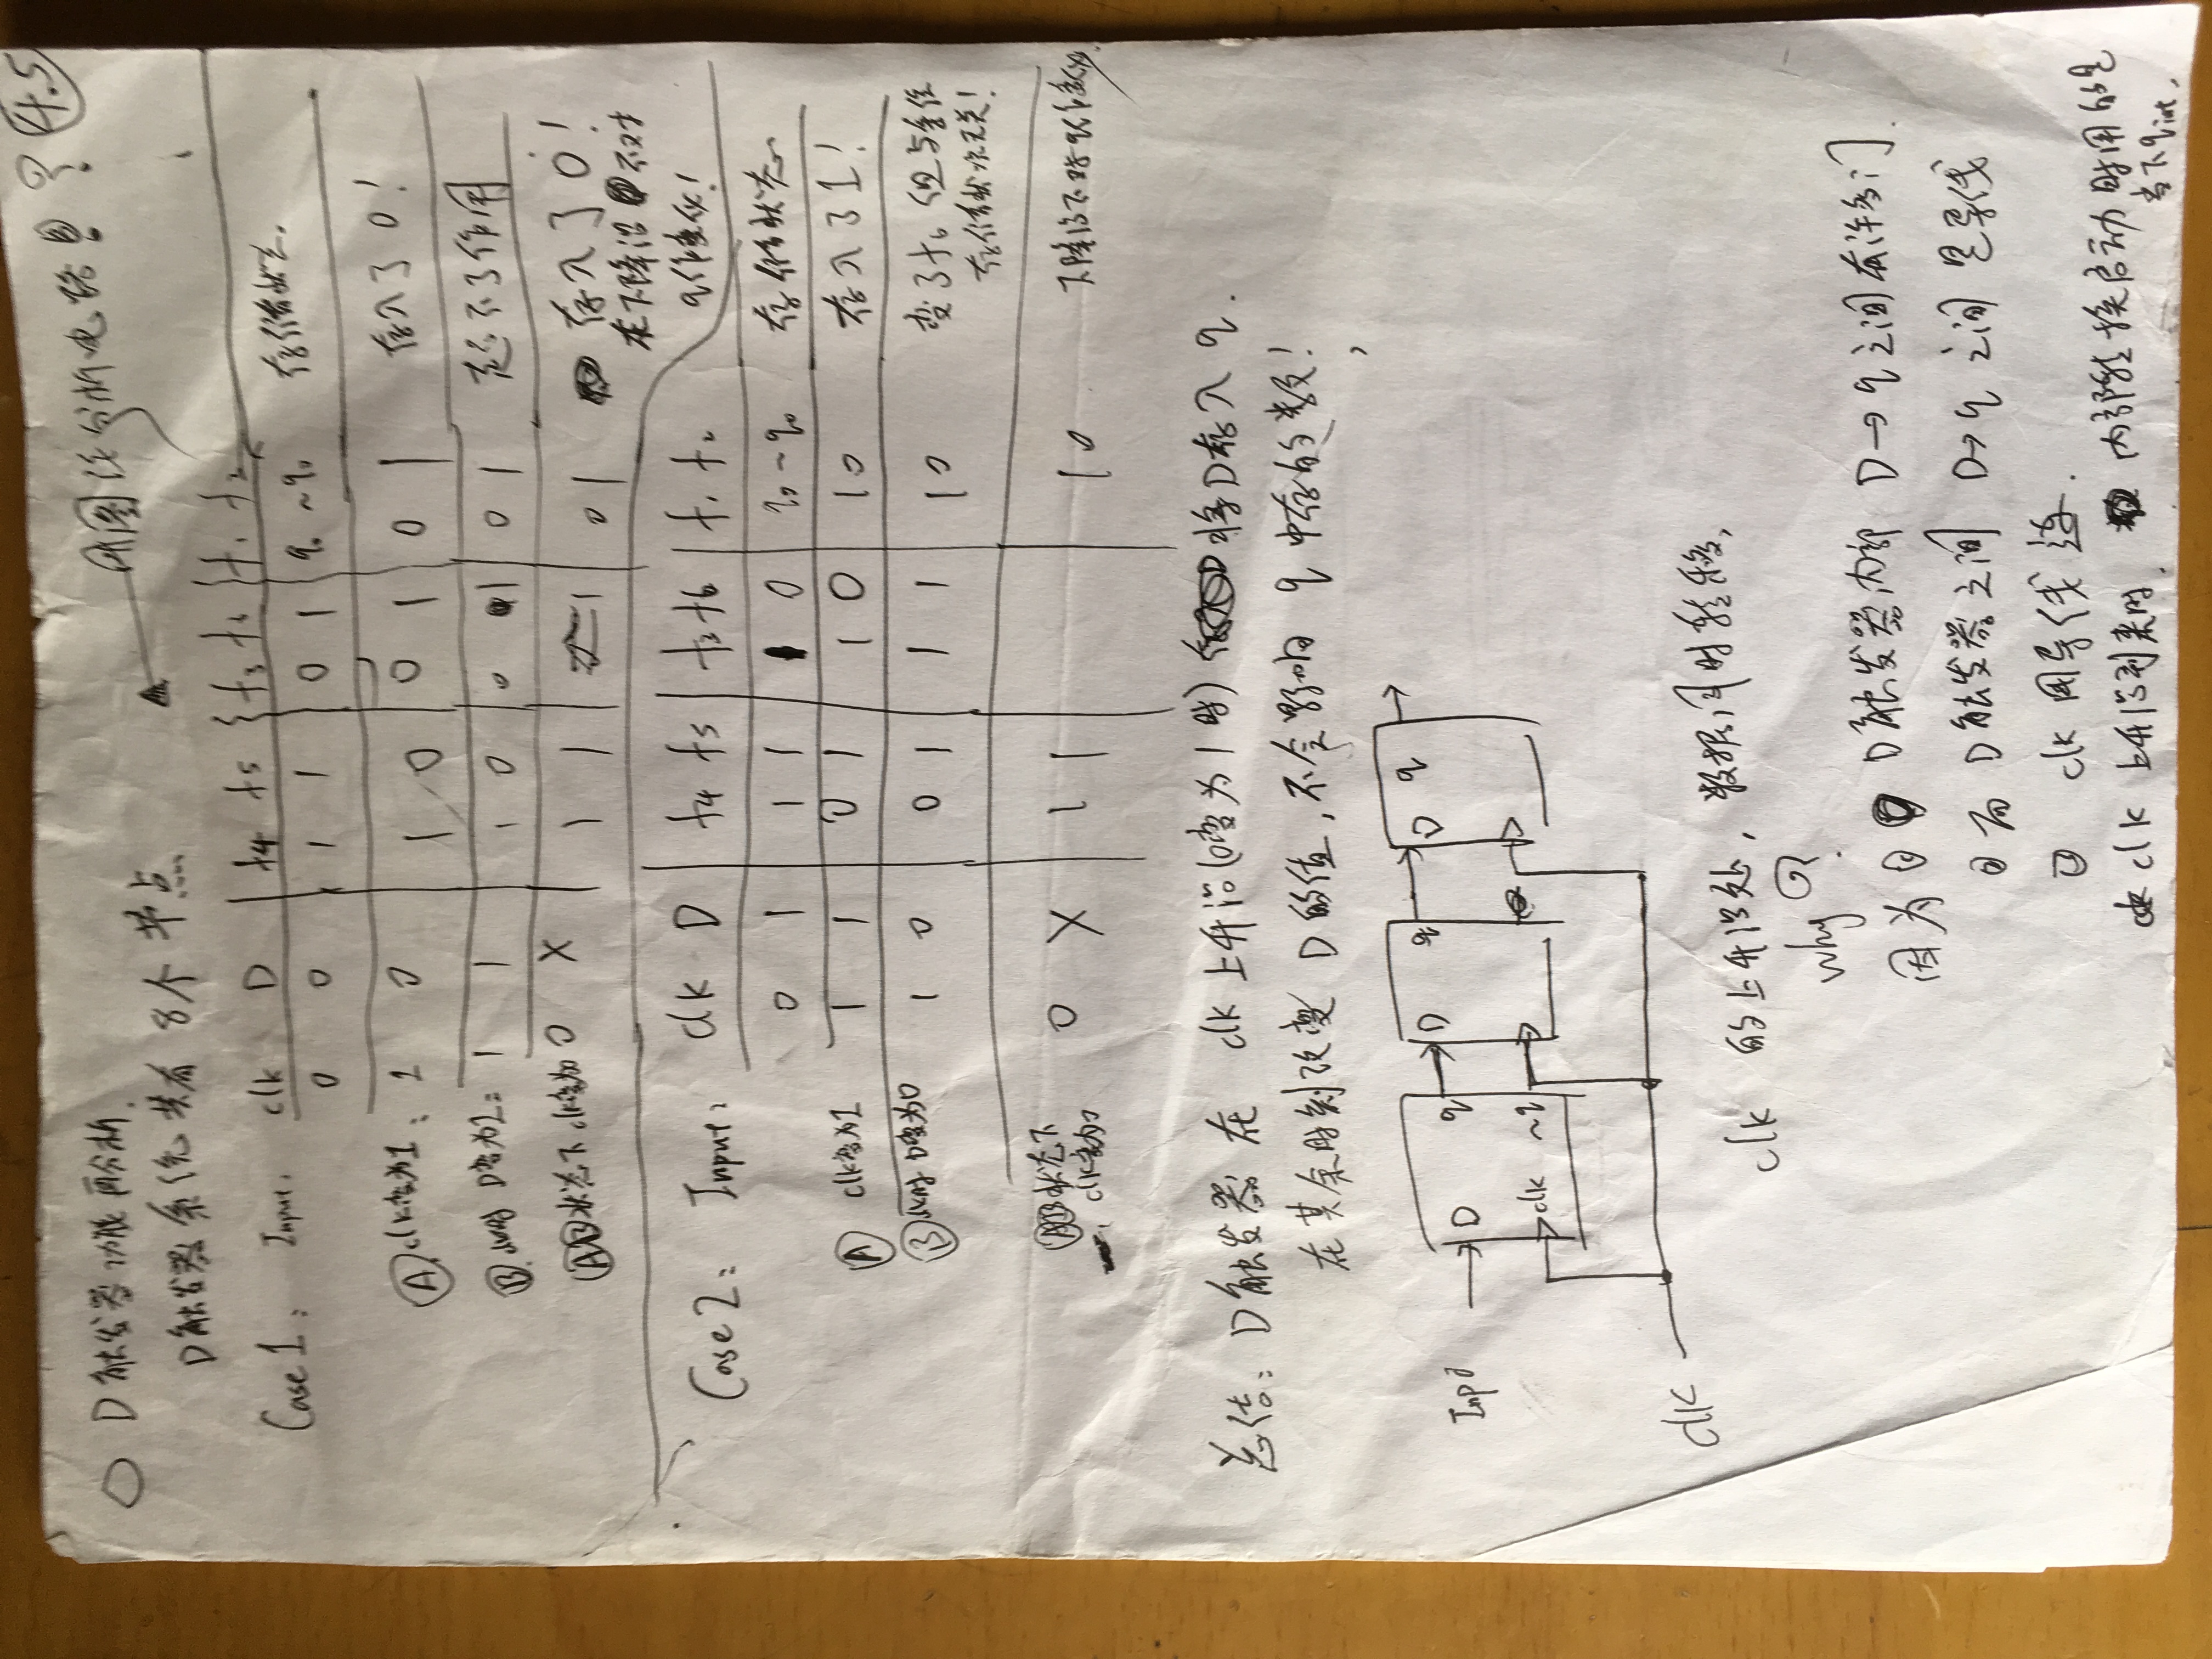 4.5
用图论分析电路图?
D触发器功能再分析.
D触发器系统共有8个节点
Case 1: Input: clk D f4 f5 f3 f6 f1 f2
0 0 1 1 0 1 q0 ~q0 存储状态.
Ⓐ clk变为1: 1 0 1 0 0 1 0 1 存入了0!
Ⓑ 此时D变为1: 1 1 1 0 0 1 0 1 起不了作用
ⒶⒷ状态下clk变为0 0 X 1 1 1 0 1 存入了0!
在下降沿不对
q作变化!
Case 2: Input: clk D f4 f5 f3 f6 f1 f2
0 1 1 1 1 0 q0 ~q0 存储状态
Ⓐ clk变为1 1 1 0 1 1 0 1 0 存入了1!
Ⓑ 此时D变为0 1 0 0 1 1 1 1 0 变了f6 但与
存储状况无关!
ⒶⒷ状态下
clk变为0 0 X 1 1 1 0 下降沿不对q作变化.
总结: D触发器 在 clk上升沿(0变为1时) 将D存入q.
在其余时刻改变 D的值, 不会影响 q中存的数!
D q D q D q
Input
clk ~q
clk
clk 的上升沿处, 数据同时转移,
why?
因为 ① D触发器内部 D→q之间有许多门.
② 而 D触发器之间 D→q 之间是导线
③ clk 用导线连.
clk 上升沿到来时, 内部转换启动时用的是
当下qint.